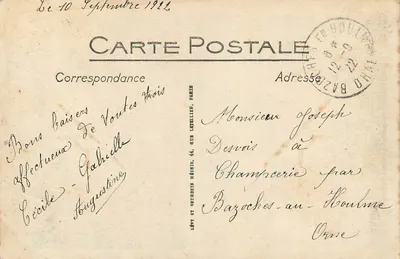 Le 10 Septembre 1922
CARTE POSTALE
Correspondance
Adresse
Bons baisers
affectueux de toutes trois
Cécile - Gabrielle
Augustine
LÉVY ET NEURDEIN RÉUNIS, 44, RUE LETELLIER, PARIS
Monsieur Joseph
Desvois à
Champcerie par
Bazoches-au-Houlme
Orne